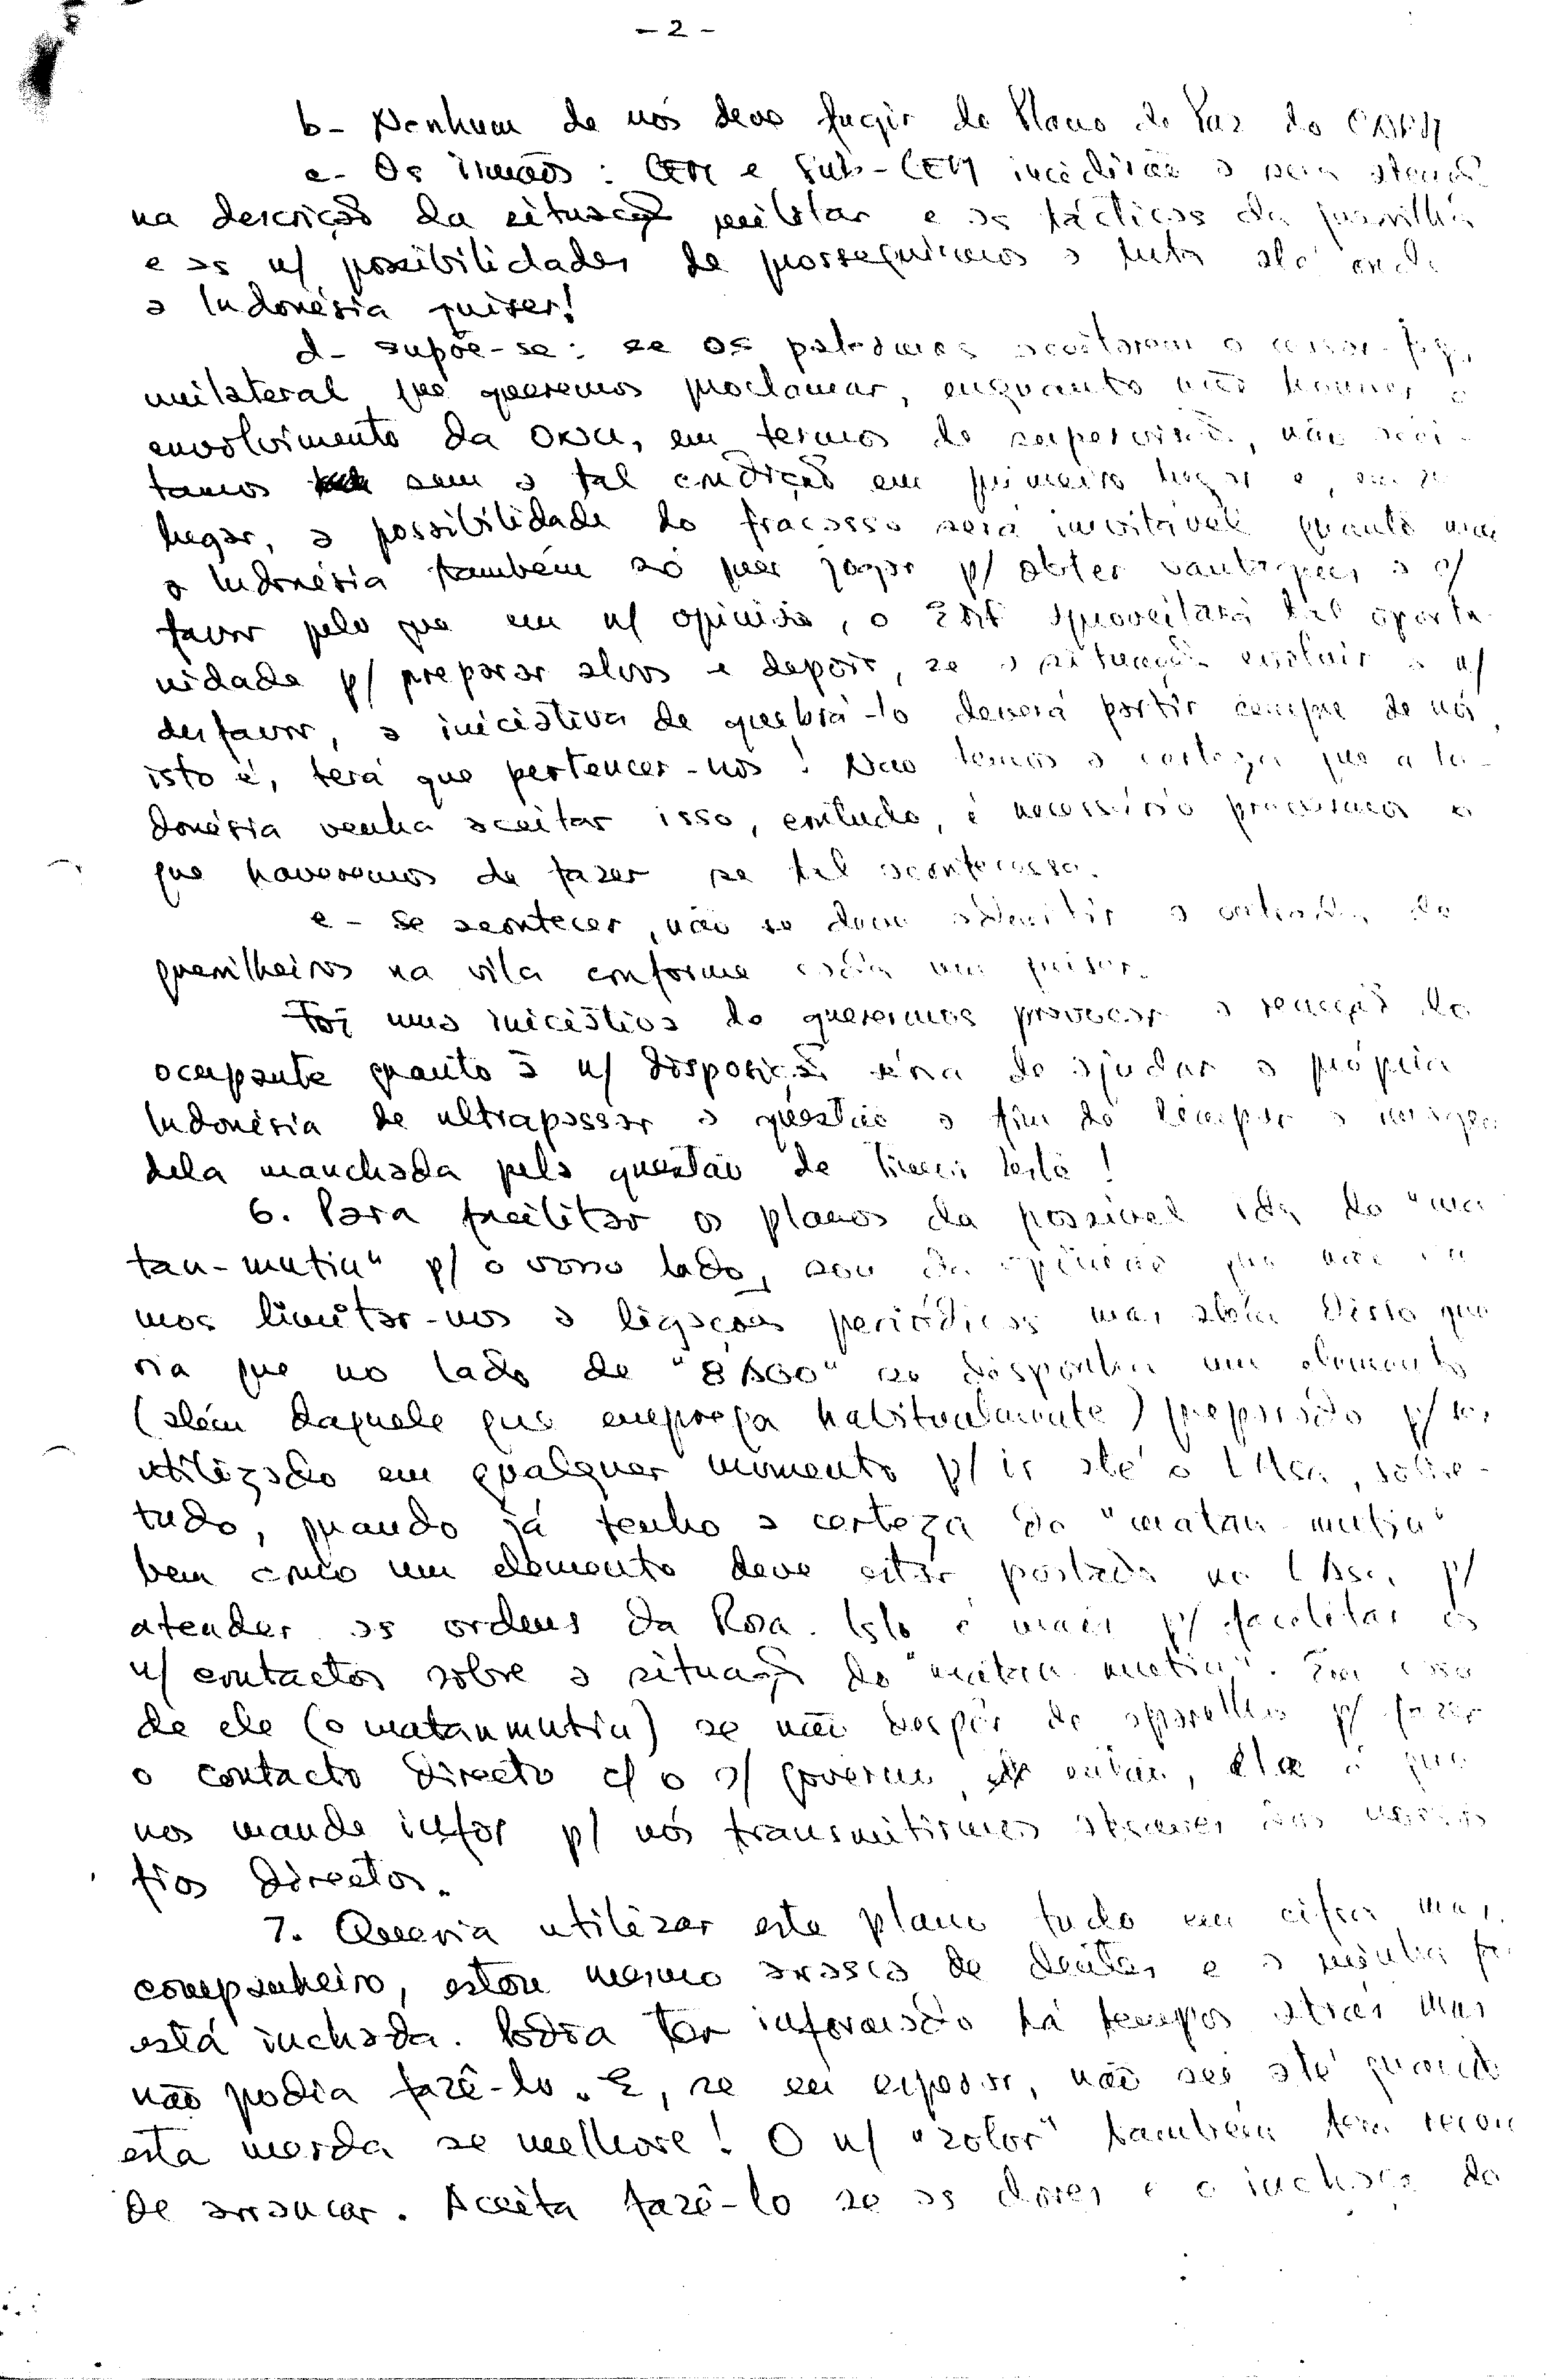 - 2 -
b- Nenhum de nós deve fugir do Plano de Paz do CRRN
c- Os irmãos : CEM e Sub-CEM incidirão a
na descrição da situação militar e as tácticas da guerrilha
e as n/ possibilidades de prosseguirmos a luta até onde
a Indonésia quiser!
d- supõe-se : se os aceitarem o cessar-fogo
unilateral que queremos proclamar, enquanto não houver o
envolvimento da ONU, em termos de supervisão, não acei-
tamos sem a tal condição em primeiro lugar e, em
lugar, a possibilidade do fracasso será inevitável quanto
a Indonésia também só quer jogar p/ obter vantagens a s/
favor pelo que em n/ opinião, o aproveitará tal oportu-
nidade p/ preparar alvos e depois, se a situação evoluir a n/
desfavor, a iniciativa de quebrá-lo deverá partir sempre de nós,
isto é, terá que pertencer-nos ! Não temos a certeza que a In-
donésia venha aceitar isso, contudo, é necessário o
que haveremos de fazer se tal acontecesse.
e - Se acontecer, não se deve admitir a entrada de
guerrilheiros na vila conforme cada um quiser.
Foi uma iniciativa de querermos provocar a reacção do
ocupante quanto à n/ disposição séria de ajudar a própria
Indonésia de ultrapassar a questão a fim de limpar a imagem
dela manchada pela questão de Timor Leste !
6. Para facilitar os planos da possível ida do "ma
tan-mutin" p/ o vosso lado, sou da opinião que não
mos limitar-nos a ligações periódicas mas além disto que-
ria que no lado de se disponha um elemento
(além daquele que emprega habitualmente) preparado p/ ser
utilizado em qualquer momento p/ ir até o , sobre-
tudo, quando já tenho a certeza do "matan-mutin"
bem como um elemento deve estar postado no p/
atender as ordens da Rosa. Isto é mais p/ facilitar os
n/ contactos sobre a situação do "matan-mutin". Em caso
de ele (o matanmutin) se não dispôr de aparelho p/ fazer
o contacto directo c/ o s/ governo, então, ele é que
nos mande infor p/ nós transmitirmos através dos nossos
fios directos.
7. Queria utilizar este plano tudo em cifra mas,
companheiro, estou mesmo de dentes e a minha
está inchada. Podia ter informado há tempos atrás mas
não podia fazê-lo. E, se eu esperar, não sei até quando
esta merda se melhore ! O n/ também tem
de arrancar. Aceita fazê-lo se as dores e o inchaço da